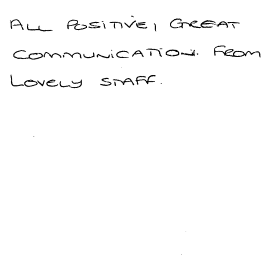 ALL POSITIVE, GREAT
COMMUNICATION FROM
LOVELY STAFF.